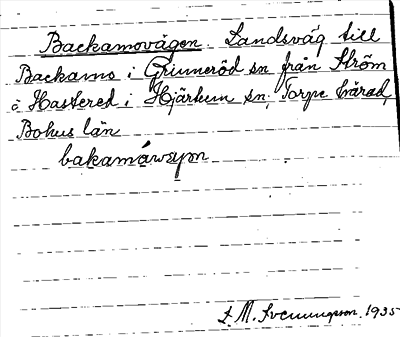 Backamovägen Landsväg till
Backamo i Grinneröd sn från Ström
å Hastered i Hjärtum sn, Torpe härad,
Bohus län
bakamåwäjen
F. M. Svenungson. 1935